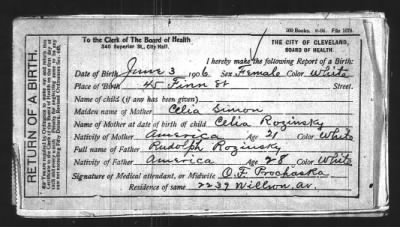 500 Books. 6-05. File 1079.
To the Clerk of The Board of Health
346 Superior St., City Hall.
THE CITY OF CLEVELAND,
BOARD OF HEALTH.
I hereby make the following Report of a Birth:
Date of Birth June 3 1906 Sex Female Color White
Place of Birth 45 Finn St Street.
Name of child (if any has been given)
Maiden name of Mother Celia Simon
Name of Mother at date of birth of child Celia Rozinsky
Nativity of Mother America Age 21 Color White
Full name of Father Rudolph Rozinsky
Nativity of Father America Age 28 Color White
Signature of Medical attendant, or Midwife O.F. Prochaska
Residence of same 2239 Willson av.
RETURN OF A BIRTH.